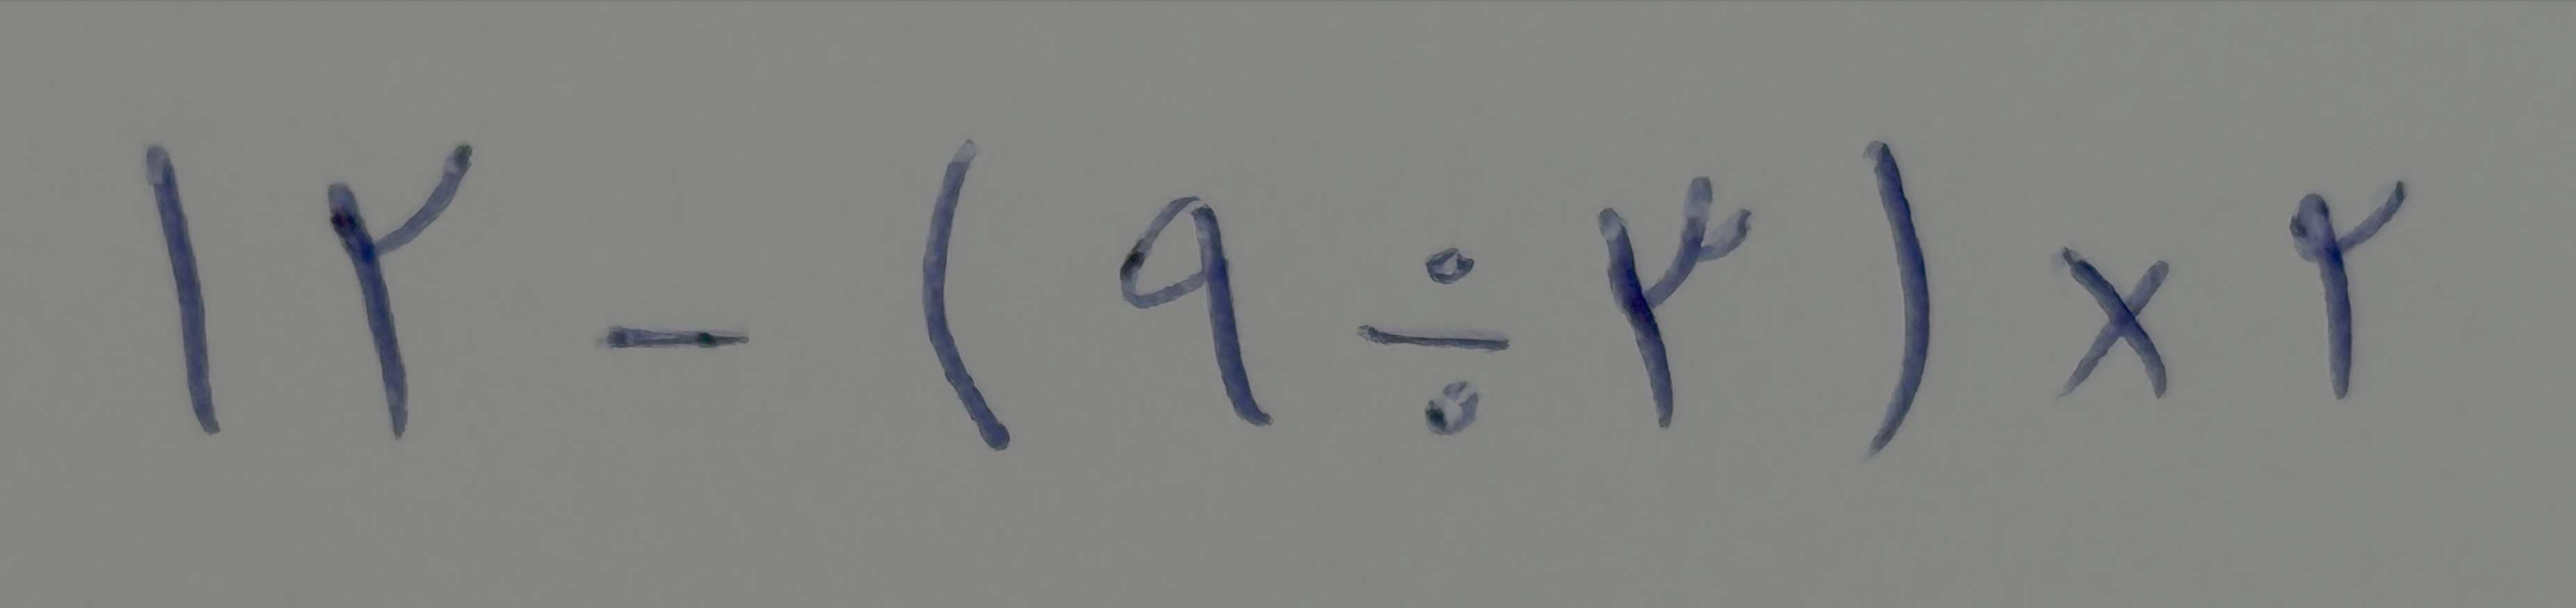 ۱۲ - (۹ ÷ ۳) × ۲